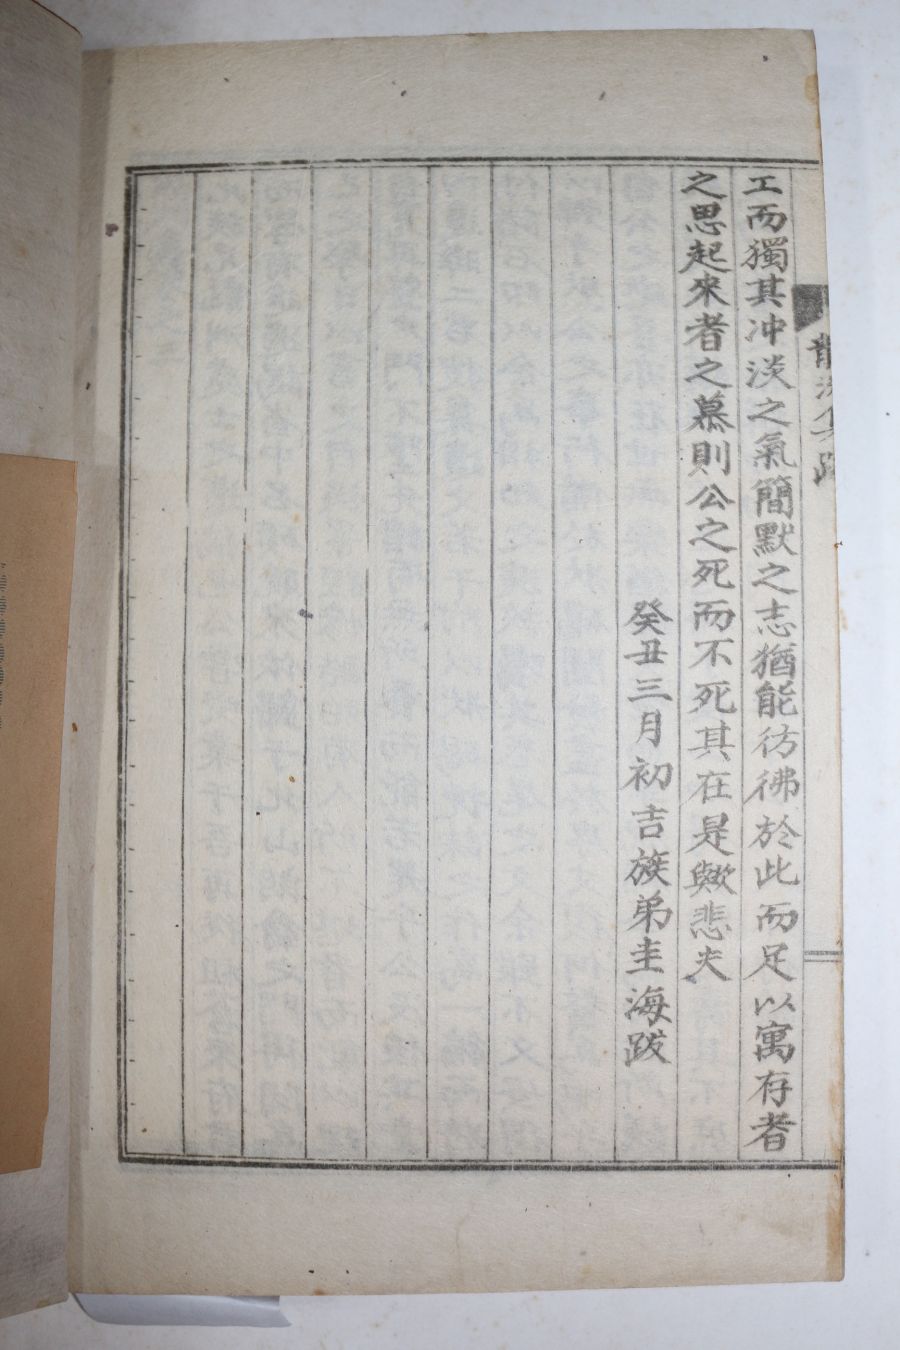 工而獨其冲淡之氣簡默之志猶能彷彿於此而足以寓存者
之思起來者之慕則公之死而不死其在是歟悲夫
癸丑三月初吉族弟圭海跋